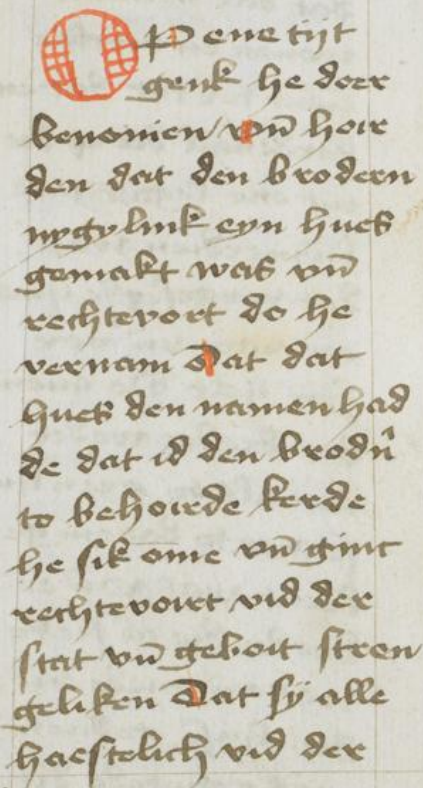 OP ene tijt
genk he doer
benonien vn̄ hoir
den dat den brodern
nygylink eyn hues
gemakt was vn̄
rechtevort do he
vernam dat dat
hues den namen had
de dat id den brodn̄
to behoirde kerde
he sik ome vn̄ ginc
rechtevoirt vid der
stat vn̄ geboit stren
geliken Dat sÿ alle
haestelich vid der